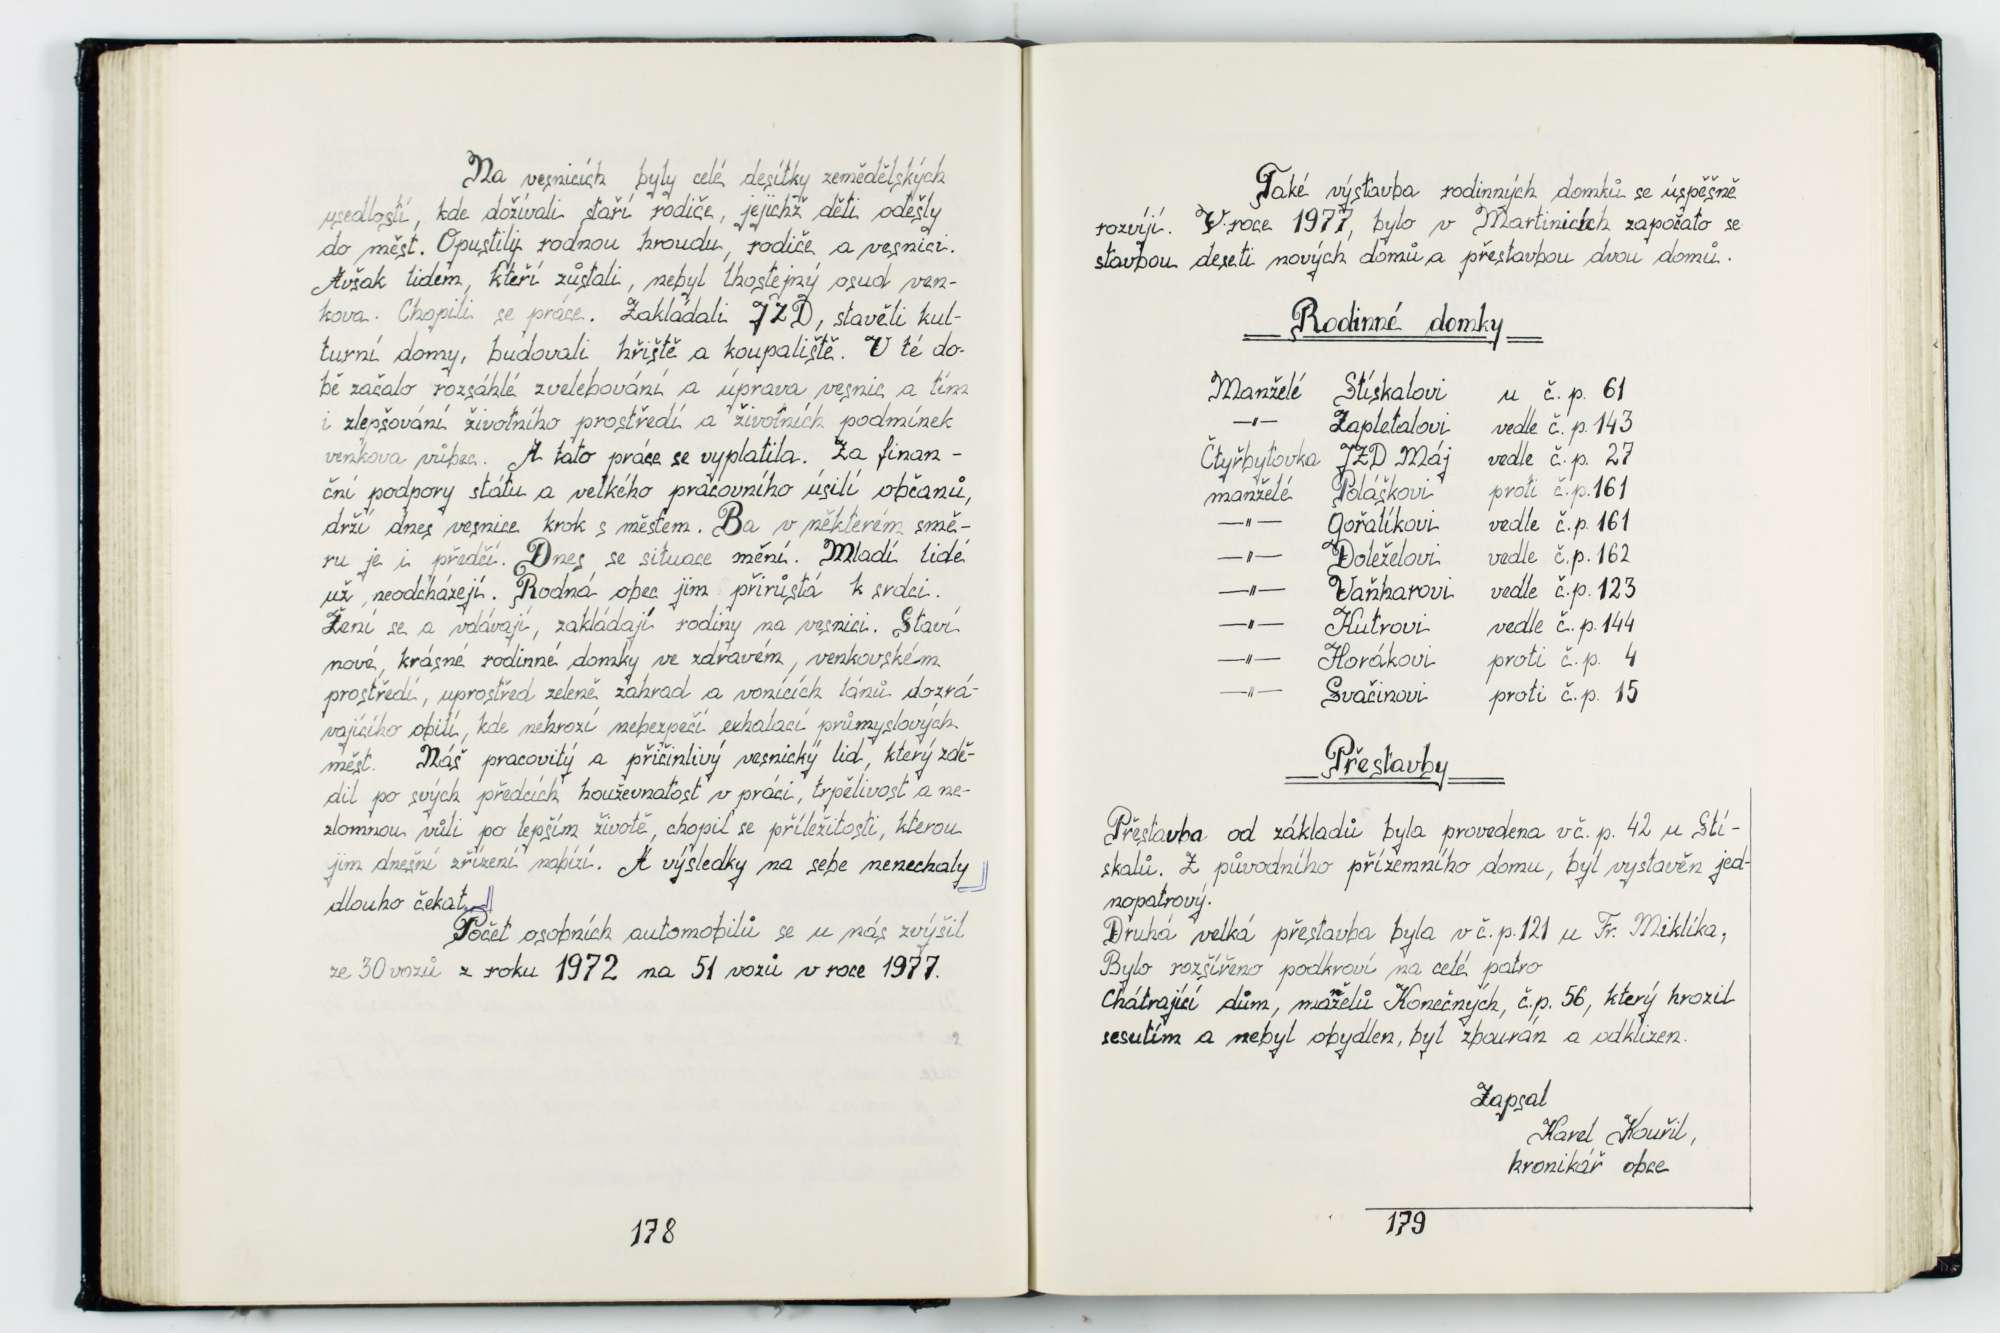 Na vesnicích byly celé desítky zemědělských
usedlostí, kde dožívali staří rodiče, jejichž děti odešly
do měst. Opustily rodnou hroudu, rodiče a vesnici.
Avšak lidem, kteří zůstali, nebyl lhostejný osud ven-
kova. Chopili se práce. Zakládali JZD, stavěli kul-
turní domy, budovali hřiště a koupaliště. V té do-
bě začalo rozsáhlé zvelebování a úprava vesnic a tím
i zlepšování životního prostředí a životních podmínek
venkova vůbec. A tato práce se vyplatila. Za finan-
ční podpory státu a velkého pracovního úsilí občanů,
drží dnes vesnice krok s městem. Ba v některém smě-
ru je i předčí. Dnes se situace mění. Mladí lidé
už neodcházejí. Rodná obec jim přirůstá k srdci.
Žení se a vdávají, zakládají rodiny na vesnici. Staví
nové, krásné rodinné domky ve zdravém, venkovském
prostředí, uprostřed zeleně zahrad a vonících lánů dozrá-
vajícího obilí, kde nehrozí nebezpečí exhalací průmyslových
měst. Náš pracovitý a přičinlivý vesnický lid, který zdě-
dil po svých předcích houževnatost v práci, trpělivost a ne-
zlomnou vůli po lepším životě, chopil se příležitosti, kterou
jim dnešní zřízení nabízí. A výsledky na sebe nenechaly
dlouho čekat.
Počet osobních automobilů se u nás zvýšil
ze 30 vozů z roku 1972 na 51 vozů v roce 1977.
178
Také výstavba rodinných domků se úspěšně
rozvíjí. V roce 1977, bylo v Martinicích započato se
stavbou deseti nových domů a přestavbou dvou domů.
Rodinné domky
Manželé Stískalovi u č. p. 61
—"— Zapletalovi vedle č. p. 143
Čtyřbytovka JZD Máj vedle č. p. 27
manželé Poláškovi proti č. p. 161
—"— Gořalíkovi vedle č. p. 161
—"— Doleželovi vedle č. p. 162
—"— Vaňharovi vedle č. p. 123
—"— Kutrovi vedle č. p. 144
—"— Horákovi proti č. p. 4
—"— Svačinovi proti č. p. 15
Přestavby
Přestavba od základů byla provedena v č. p. 42 u Stí-
skalů. Z původního přízemního domu, byl vystavěn jed-
nopatrový.
Druhá velká přestavba byla v č. p. 121 u Fr. Miklíka,
Bylo rozšířeno podkroví na celé patro
Chátrající dům, manželů Konečných, č. p. 56, který hrozil
sesutím a nebyl obydlen, byl zbourán a odklizen.
Zapsal
Karel Kouřil,
kronikář obce
179